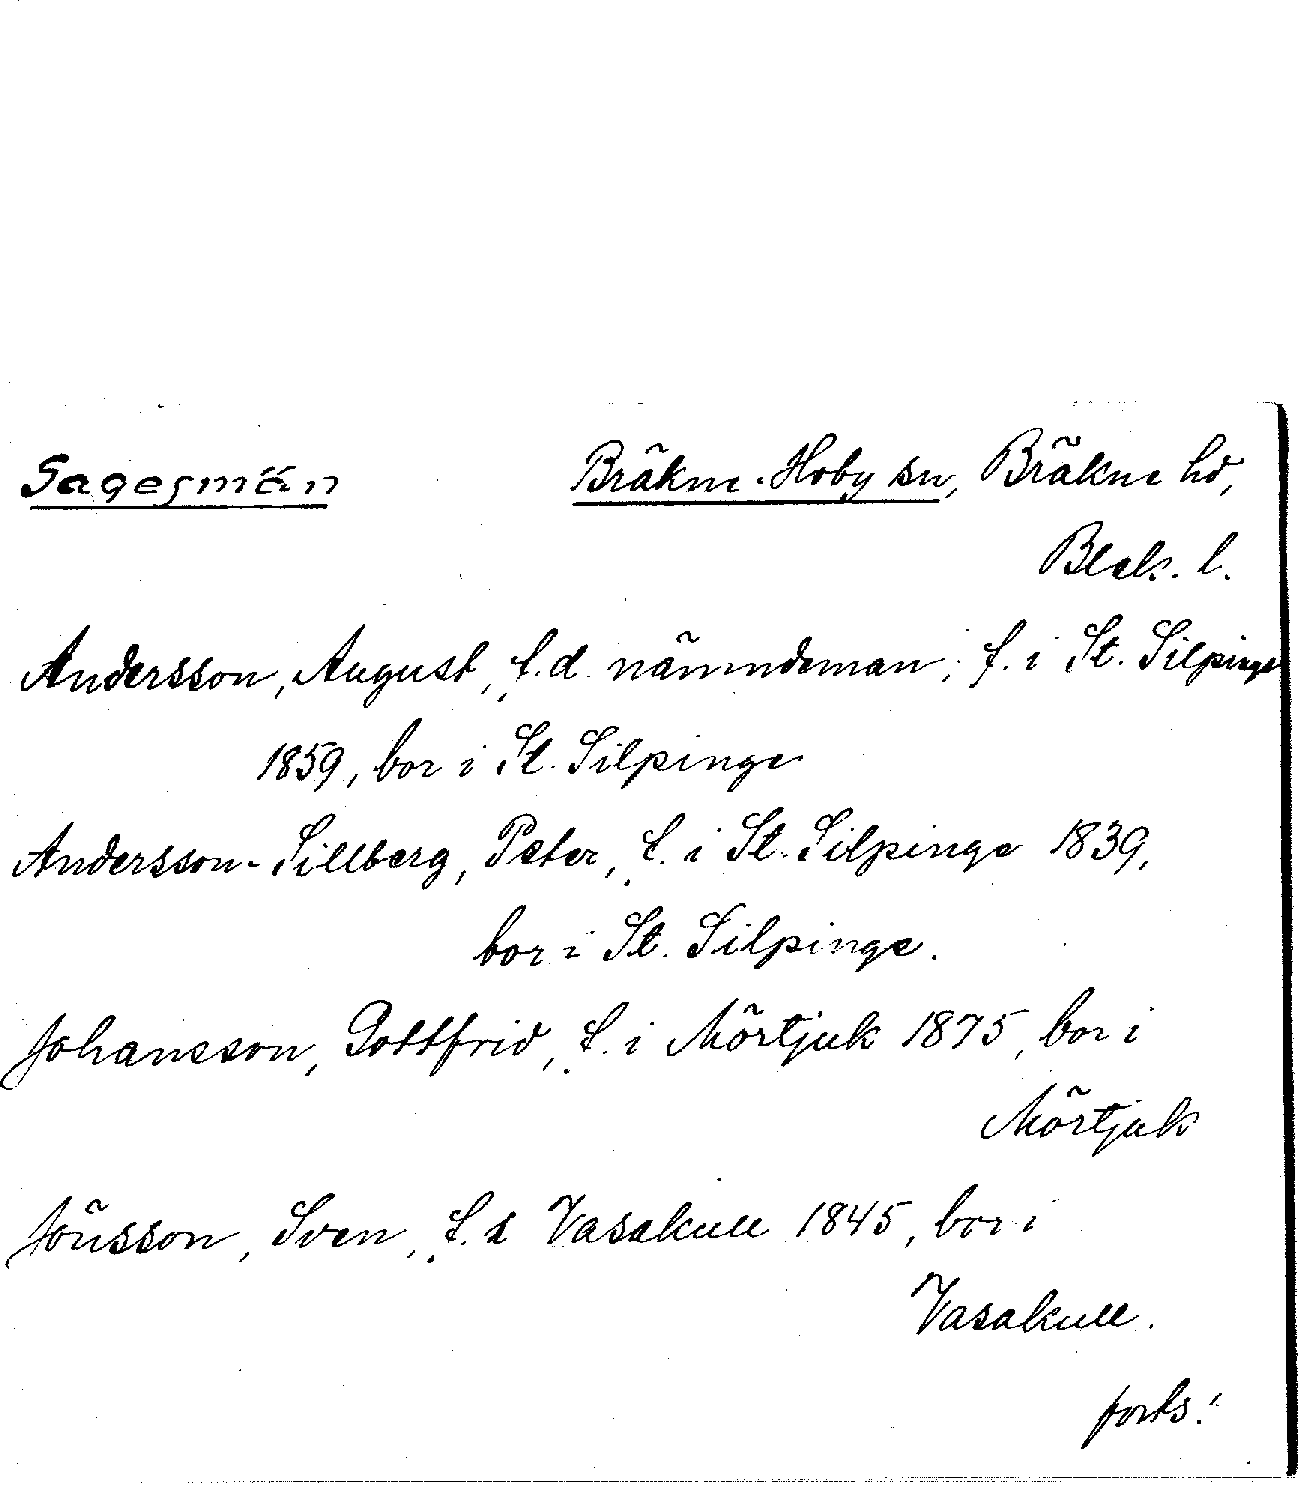 Sagesmän
Bräkne-Hoby sn, Bräkne hd,
Blek. l.
Andersson, August, f.d. nämndeman, f. i St. Silpinge
1859, bor i St. Silpinge
Andersson-Sillberg, Peter, f. i St. Silpinge 1839,
bor i St. Silpinge.
Johansson, Gottfrid, f. i Mörtjuk 1875, bor i
Mörtjuk
Jönsson, Sven, f. i Vasakull 1845, bor i
Vasakull.
forts!